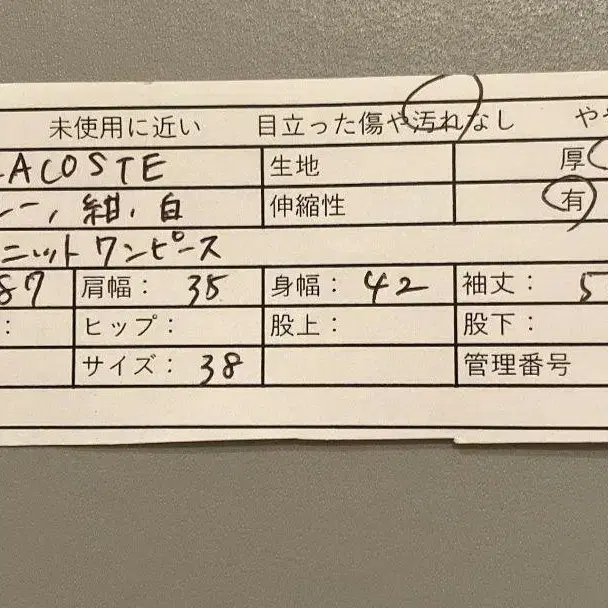 未使用に近い 目立った傷や汚れなし やや
LACOSTE 生地 厚
ー, 紺, 白 伸縮性 有
ニットワンピース
87 肩幅： 35 身幅： 42 袖丈： 5
： ヒップ： 股上： 股下：
サイズ： 38 管理番号